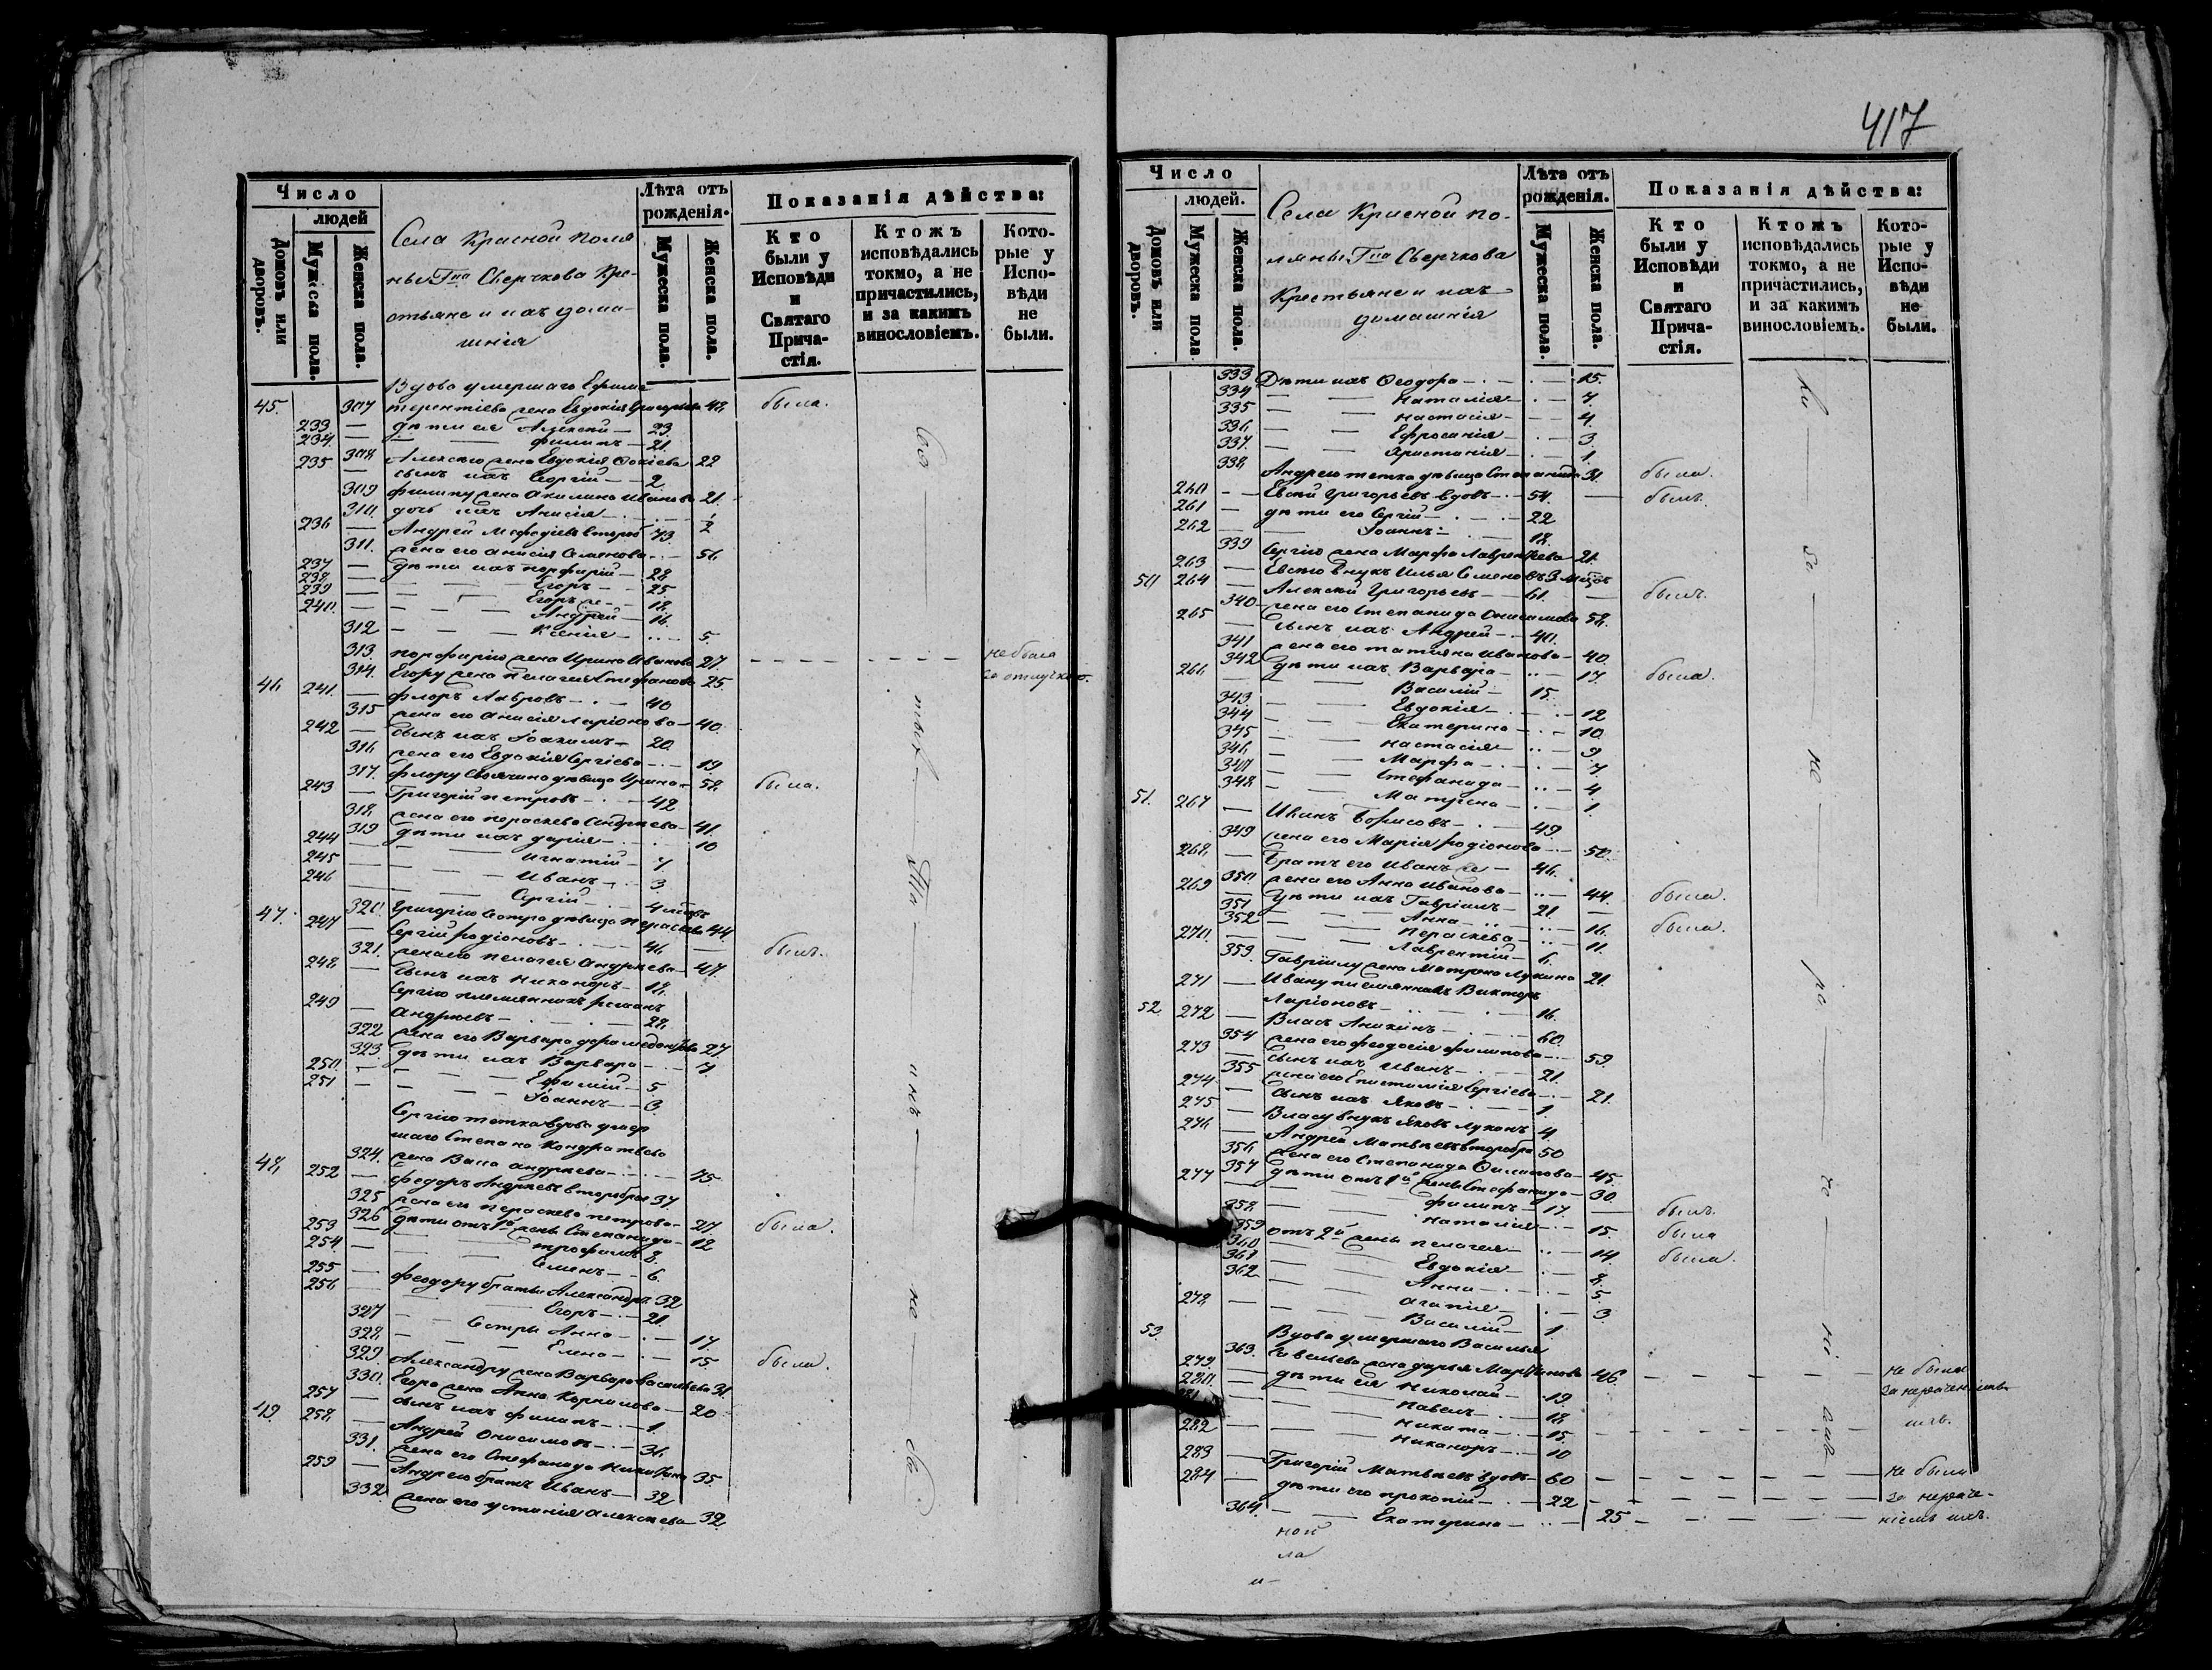 417
Число
людей
Домовъ или дворовъ.
Мужеска пола.
Женска пола.
Села Красной Поля
ны Г-на Сверчкова Кре
стьяне и ихъ дома
шнія
Лѣта отъ рожденія.
Мужеска пола.
Женска пола.
Показанія дѣйства:
Кто были у Исповѣди и Святаго Причастія.
Ктожъ исповѣдались токмо, а не причастились, и за какимъ винословіемъ.
Которые у Исповѣди не были.
Вдова умершаго Ефима
45. 307 терентіева жена Евдокія Григорьева 48 была.
233 — дѣти ея Алексѣй — 23
234 — — филипъ — 21
308 Алексѣю жена Евдокія Фокіева 22
235 — сынъ ихъ Сергій — 2
309 филипу жена Акилина Иванова 21
310 дочь ихъ Анисія — 1/2
236 — Андрей Мефодіевъ второб 73
311. жена его Анисія Семенова — 56
237 — дѣти ихъ порфирій — 28
238 — — Егоръ — 25
239 — — Егоръ же — 18
240 — — Андрей — 16
312 — — Ксенія — 5
313. порфирію жена Ирина Иванова 27 не была
314. Егору жена пелагея Стефанова 25 за отлучкою.
46 241 — флоръ Лавровъ — 40
315 жена его Анисія Ларіонова — 40
242 — сынъ ихъ Іоакимъ — 20
316 жена его Евдокія Сергіева — 19
317. флору своячина дѣвица Ирина — 58 была.
243 — Григорій петровъ — 42
318 жена его параскева Андреева — 41
319 дѣти ихъ дарія — 10
244 — — игнатій — 7
245 — — Иванъ — 3
246 — — Сергій — 4 мѣсъ
320. Григорію сестра дѣвица параскева 44
47. 247 — Сергій родіоновъ — 46 былъ.
321. жена его пелагея Андреева — 47
248 — сынъ ихъ Никаноръ — 18
Сергію племянникъ романъ
249 — Андреевъ — 28
322 жена его Варвара 27
323. дѣти ихъ Варвара — 7
250. — — Ефимій — 5
251 — — Іоаннъ — 3
Сергію тетка вдова умер
шаго Степана Кондратьева
324. жена Васса андреева — 75
48 252 — федоръ Андреевъ второбрач 37
325 жена его параскева петрова — 27 была.
326 дѣти отъ 1й жены Степанида — 12
253 — — трофимъ 8.
254 — — Семенъ — 6.
255 — феодору братья Александръ 32
256 — — Егоръ — 21
327 — — Сестры Анна — 17
328 — — Елена — 15 была.
329. Александру жена Варвара Васильева 31
330. Егору жена Анна Корнилова — 20
257 — сынъ ихъ филипъ — 1
49. 258 — Андрей Онисимовъ — 36
331. жена его Стефанида Никитина 35
259 — Андрею братъ Иванъ — 32
332 жена его устинія Алексѣева 32
Сіи
Число
людей.
Домовъ или дворовъ.
Мужеска пола
Женска пола.
Села Красной по-
ляны Г-на Сверчкова
Крестьяне и ихъ
домашнія
Лѣта отъ рожденія.
Мужеска пола.
Женска пола.
Показанія дѣйства:
Кто были у Исповѣди и Святаго Причастія.
Ктожъ исповѣдались токмо, а не причастились, и за какимъ винословіемъ.
Которые у Исповѣди не были.
333 Дѣти ихъ Феодора — 15.
334 — — Наталія — 7.
335 — — Настасія — 4.
336 — — Ефросинія — 3
337. — — Христинія — 1.
338 Андрею тетка дѣвица Степанида 31 была.
260 — Евсей Григорьевъ вдовъ — 54 былъ.
261 — дѣти его Сергій — 22
262 — — Іоаннъ — 18
339 Сергію жена Марфа Лаврентьева 21.
263 — Евсею внукъ Илья Семеновъ 3 мѣсъ
50 264 — Алексѣй Григорьевъ — 61 былъ.
340 жена его Степанида Онисимова 58.
265 — сынъ ихъ Андрей — 40
341 жена его татьяна иванова — 40
342 дѣти ихъ Варвара — 17 была.
266 — — Василій — 15
343 — — Евдокія — 12
344 — — Екатерина — 10
345 — — Настасія — 9
346 — — Марфа — 7
347 — — Стефанида — 4
348 — — Матрена — 1
51. 267 — Иванъ Борисовъ — 49
349 жена его Марія родіонова — 50
268 — братъ его Иванъ же — 46
350. жена его Анна Иванова — 44 была.
269 — дѣти ихъ Гавріилъ — 21
351 — — Анна — 16 была.
352 — — параскева — 11
270. — — Лаврентій — 6
353. Гавріилу жена Матрена Лукина 21
Ивану племянникъ Викторъ
271 — Ларіоновъ — 16
52 272 — Власъ Аникинъ — 60
354 жена его феодосія филипова — 59
273 — сынъ ихъ Иванъ — 21
355 жена его Епистимія Сергіева — 21
274 — сынъ ихъ Яковъ — 1
275 — Власу внукъ Яковъ Лукинъ 4
276 — Андрей Матвѣевъ второбра 50
356 жена его Степанида филипова — 45
357 дѣти отъ 1й жены Стефанида — 30
277 — — филипъ — 17 былъ.
358. — — Наталія — 15 была
359 отъ 2й жены пелагея — 14 была.
360 — — Евдокія — 8
361 — — Анна — 5
362 — — Агапія — 3
278 — — Василій — 1
53. Вдова умершаго Василья
363. Савельева жена дарья Мартинова 46 — не была
279. — дѣти ея Николай — 19 за нераченіемъ
280. — — Павелъ — 18 ихъ.
281 — — Никита — 15
282 — — Никаноръ — 10
283 — Григорій Матвѣевъ вдовъ — 60 — не были
284 — дѣти его прокопій — 22 за нераче-
364. — — Екатерина — 25 ніемъ ихъ.